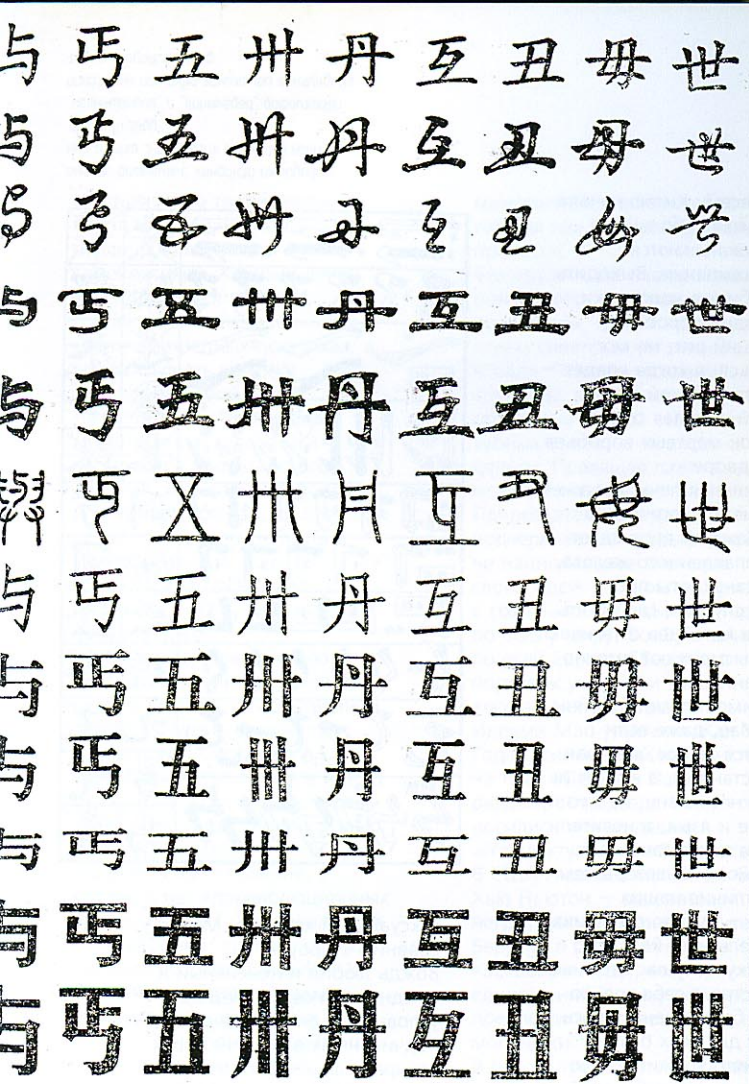 与丐五卅丹互丑毋世
与丐五卅丹互丑毋世
与丐五卅丹互丑毋世
与丐五卅丹互丑毋世
与丐五卅丹互丑毋世
与丐五卅丹互丑毋世
与丐五卅丹互丑毋世
与丐五卅丹互丑毋世
与丐五卅丹互丑毋世
与丐五卅丹互丑毋世
与丐五卅丹互丑毋世
与丐五卅丹互丑毋世